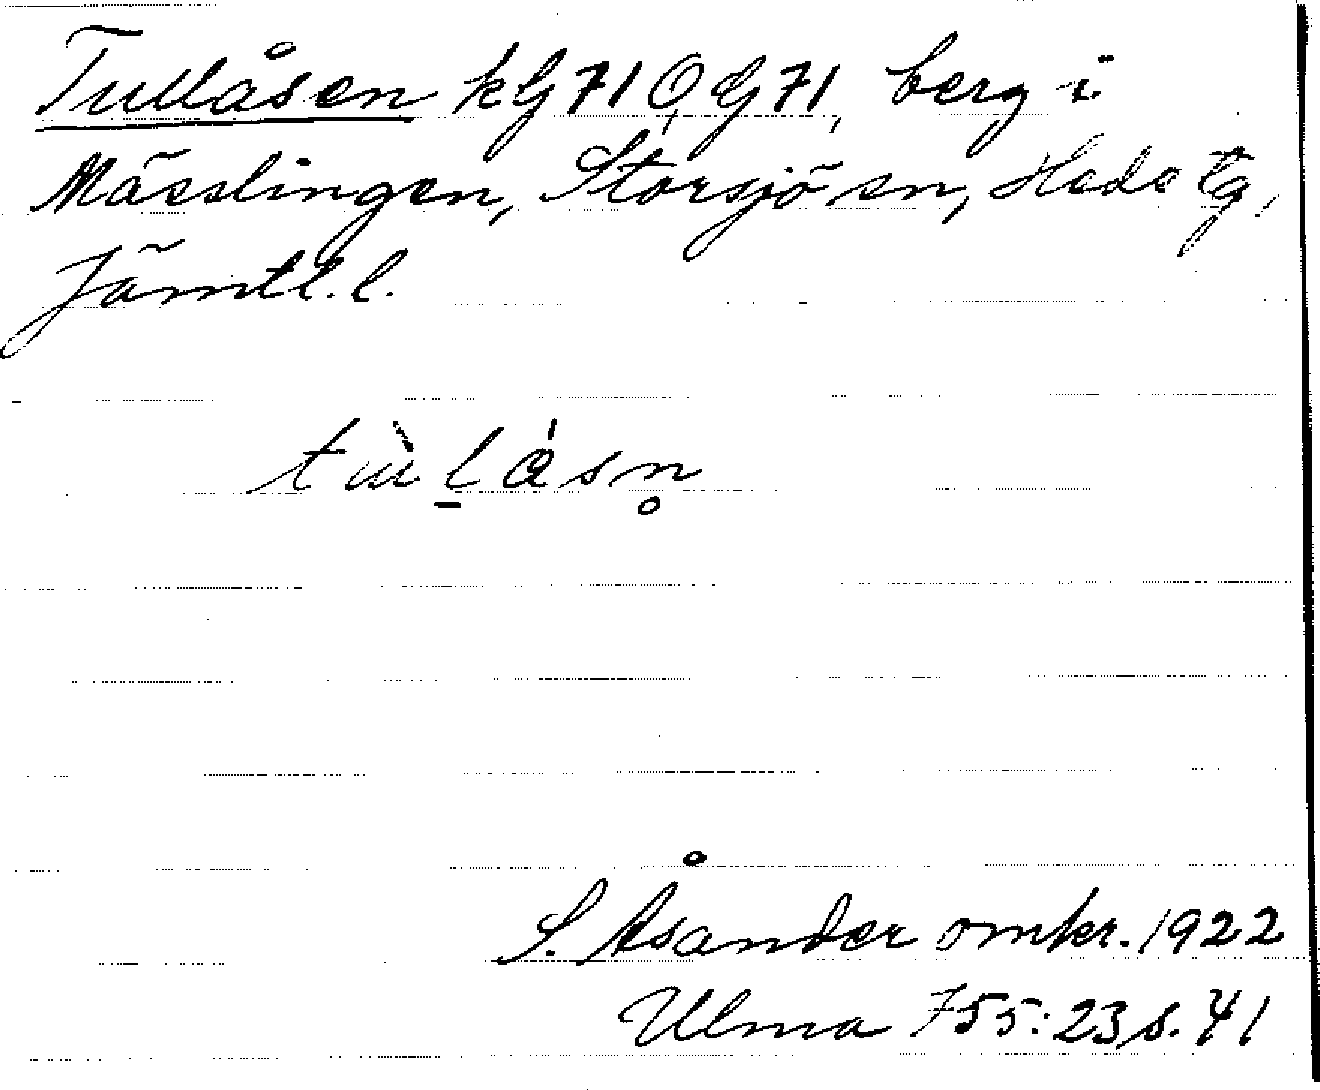 Tullåsen kG 71 Ö, G 71, berg i
Mässlingen, Storsjö sn, Hede tg,
Jämtl. l.
tɯ̀l̠ásn̥
S. Åsander omkr. 1922
Ulma 755:23 s. 41